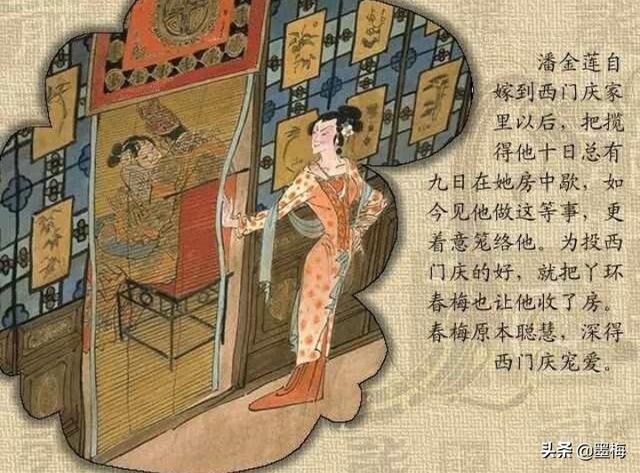 潘金莲自
嫁到西门庆家
里以后，把揽
得他十日总有
九日在她房中歇，如
今见他做这等事，更
着意笼络他。为投西
门庆的好，就把丫环
春梅也让他收了房。
春梅原本聪慧，深得
西门庆宠爱。
头条 @墨梅